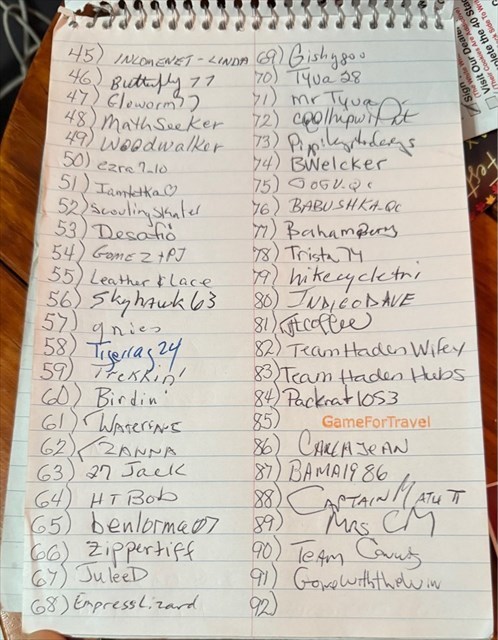 45) INCOMENET-LINDA
46) Butterfly 77
47) Gleworm77
48) MathSeeker
49) Woodwalker
50) ezra 7-10
51)
52) Scouting Skater
53) Desafio
54) GOMEZ + PJ
55) Leather & lace
56) Skyhawk 63
57) gnies
58) Tigerrag 24
59) Trekkin'
60) Birdin'
61) WATERINE
62) ZANNA
63) 27 Jack
64) HT Bob
65) benlorma07
66) Zippertiff
67) JuleeD
68) EmpressLizard
69) Gishy800
70) Tyua 28
71) mr Tyua
72)
73)
74) BWelcker
75) GOGU.QC
76) BABUSHKA.QC
77) Bahamboys
78) Trista 74
79) hikecycletri
80) INDIGODAVE
81) JTcoffee
82) Team Haden Wifey
83) Team Haden Hubs
84) Packrat 1053
85) GameForTravel
86) CARLA JEAN
87) BAMA1986
88) CAPTAIN MATH II
89) Mrs CM
90) TEAM
91) Gonewiththewin
92)
plete the 40 Star
Visit Our Dealer